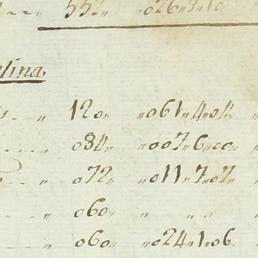 552„ „026„3„10
lina.
120„ „061„4„04
084„ „007„6„00„
072„ „011„7„07
060„ „ „ „
060„ „024„1„06